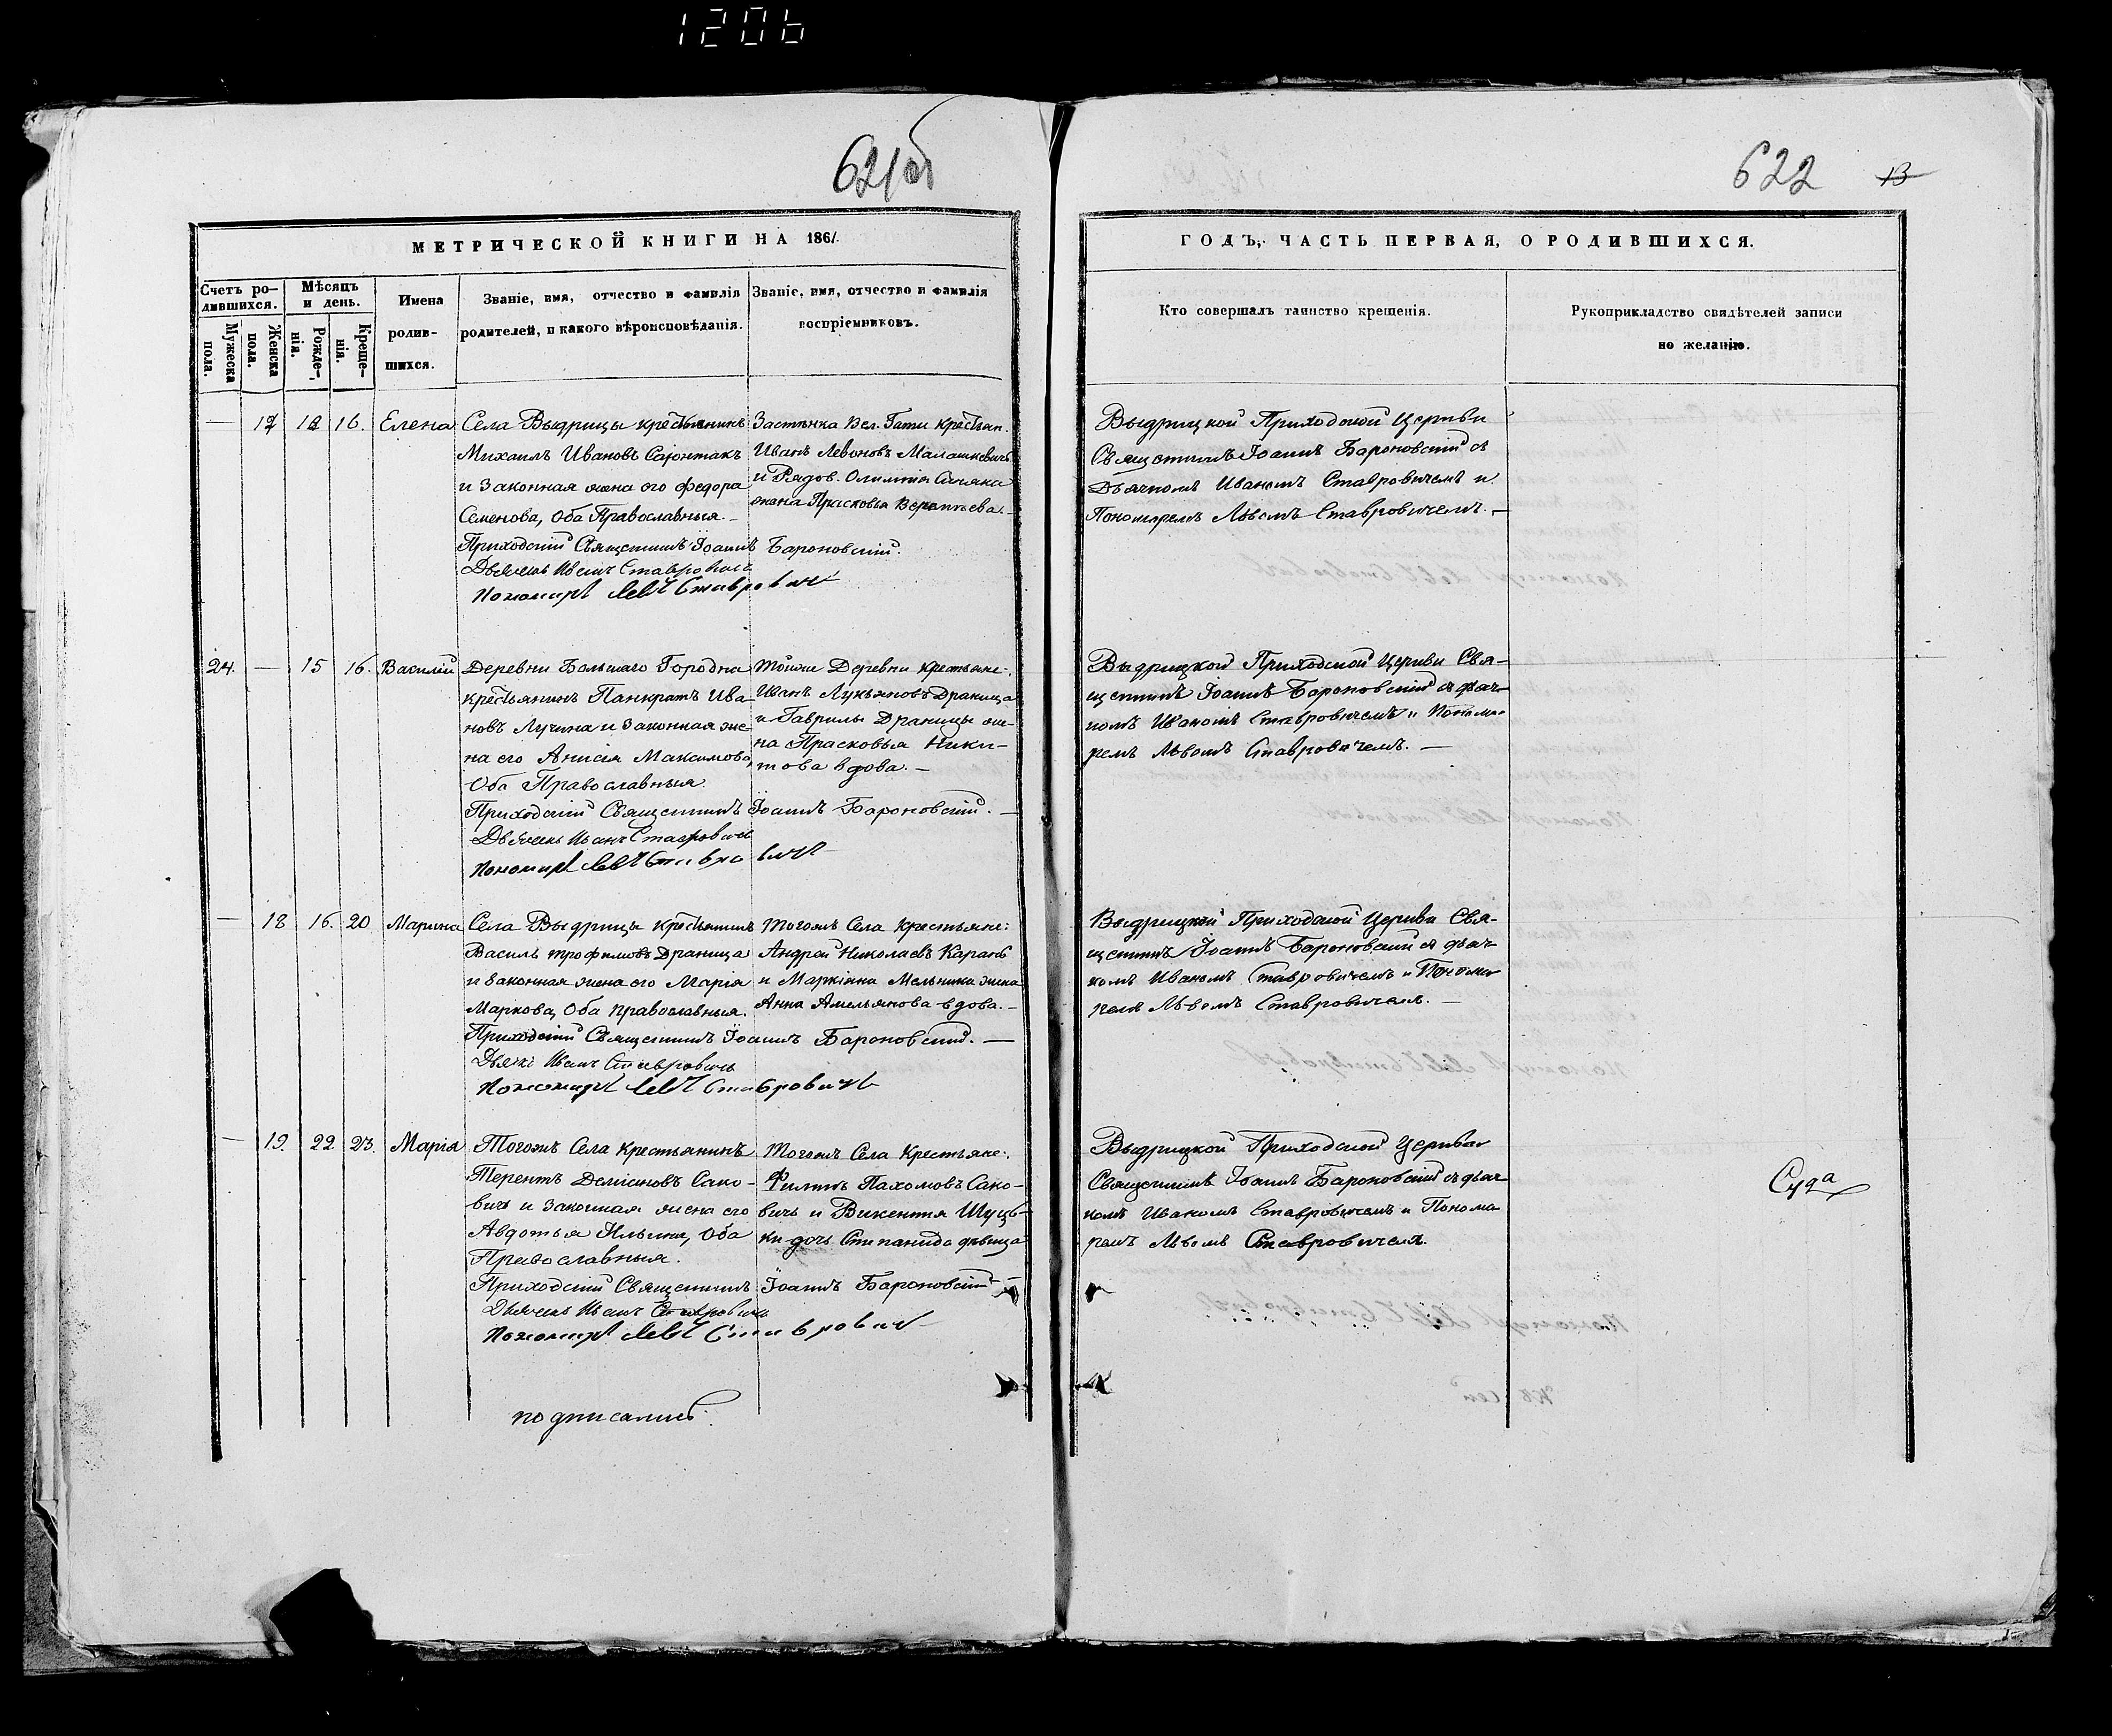 1206
621об
МЕТРИЧЕСКОЙ КНИГИ НА 1861.
Счетъ ро-
дившихся.
Мѣсяцъ
и день.
Мужеска
пола.
Женска
пола.
Рожде-
нія.
Креще-
нія.
Имена
родив-
шихся.
Званіе, имя, отчество и фамилія
родителей, и какого вѣроисповѣданія.
Званіе, имя, отчество и фамилія
воспріемниковъ.
— 17 12 16. Елена
Села Выдрицы крестьянинъ
Михаилъ Ивановъ
и Законная жена его Федора
Семенова, Оба Православныя.—
Застѣнка Вел. Гати Крестьян.
Иванъ Левоновъ Малашкевичъ
и Рядов.
жена Прасковья
Приходскій Священникъ Іоаннъ Бароновскій.
Дьячекъ Иванъ Ставровичъ
Пономарь Левъ Ставровичъ
24. — 15 16. Василій
Деревни Большаго Городна
крестьянинъ Панкратъ Ива-
новъ Лучина и Законная же-
на его Анисія Максимова,
Оба Православныя.
Тойже Деревни крестьяне:
Иванъ Лукьяновъ Драница
и Гаврилы Драницы же-
на Прасковья Ники-
това вдова.—
Приходскій Священникъ Іоаннъ Бароновскій.—
Дьячекъ Иванъ Ставровичъ
Пономарь Левъ Ставровичъ
— 18 16. 20 Марина
Села Выдрицы крестьянинъ
Василь Трофимовъ Драница
и Законная жена его Марія
Маркова, Оба Православныя.
Тогожъ Села Крестьяне:
Андрей Николаевъ Карань
и Маркіяна Мельника жена
Анна Амельянова вдова.—
Приходскій Священникъ Іоаннъ Бароновскій.—
Дьячекъ Иванъ Ставровичъ
Пономарь Левъ Ставровичъ
— 19. 22 23. Марія
Тогожъ Села крестьянинъ
Терентъ Деміановъ Сако-
вичъ и Законная жена его
Авдотья Ильина, Оба
Православныя.
Тогожъ Села Крестьяне:
Филипъ Пахомовъ Сако-
вичъ и Викентія Шуць-
ки дочь Стипанида дѣвица
Приходскій Священникъ Іоаннъ Бароновскій—
Дьячекъ Иванъ Ставровичъ
Пономарь Левъ Ставровичъ
подписались:
622 13
ГОДЪ, ЧАСТЬ ПЕРВАЯ, О РОДИВШИХСЯ.
Кто совершалъ таинство крещенія.
Рукоприкладство свидѣтелей записи
по желанію.
Выдрицкой Приходской Церкви
Священникъ Іоаннъ Бароновскій съ
Дьячкомъ Иваномъ Ставровичемъ и
Пономаремъ Львомъ Ставровичемъ.—
Выдрицкой Приходской Церкви Свя-
щенникъ Іоаннъ Бароновскій съ дьяч-
комъ Иваномъ Ставровичемъ и Понома-
ремъ Львомъ Ставровичемъ.—
Выдрицкой Приходской Церкви Свя-
щенникъ Іоаннъ Бароновскій съ дьяч-
комъ Иваномъ Ставровичемъ и Понома-
ремъ Львомъ Ставровичемъ.—
Выдрицкой Приходской Церкви
Священникъ Іоаннъ Бароновскій съ дьяч-
комъ Иваномъ Ставровичемъ и Понома
ремъ Львомъ Ставровичемъ.
Суда